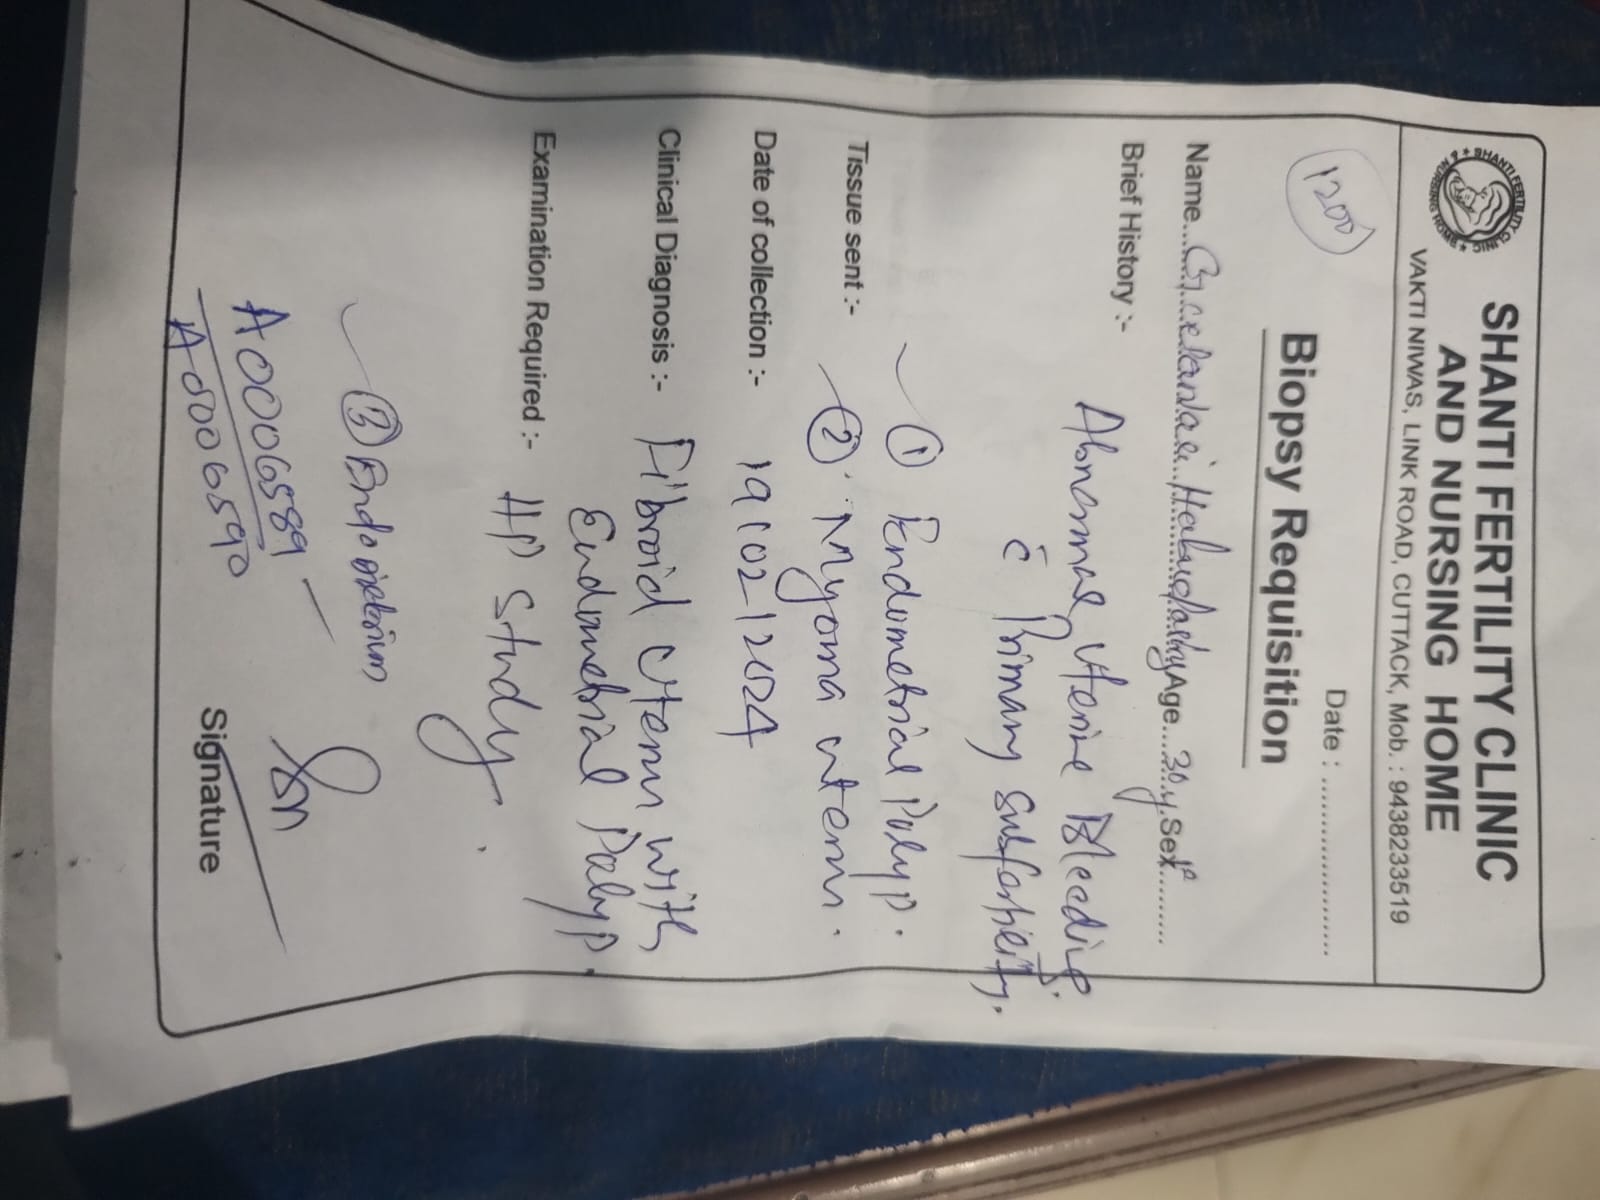 SHANTI FERTILITY CLINIC
AND NURSING HOME
VAKTI NIWAS, LINK ROAD, CUTTACK, Mob. : 9438233519
SHANTI FERTILITY CLINIC
NURSING HOME
1200
Date : ......................
Biopsy Requisition
Name... Age....30.y.Sex.........
Brief History :-
Abnormal Uterine Bleeding.
c̄ Primary subfertility.
Tissue sent :-
① Endometrial Polyp.
② Myoma uterus.
Date of collection :- 19/02/2024
Clinical Diagnosis :- Fibroid Uterus with
Endometrial Polyp.
Examination Required :- HP Study.
③ Endometrium
A0006589
A0006590
Signature